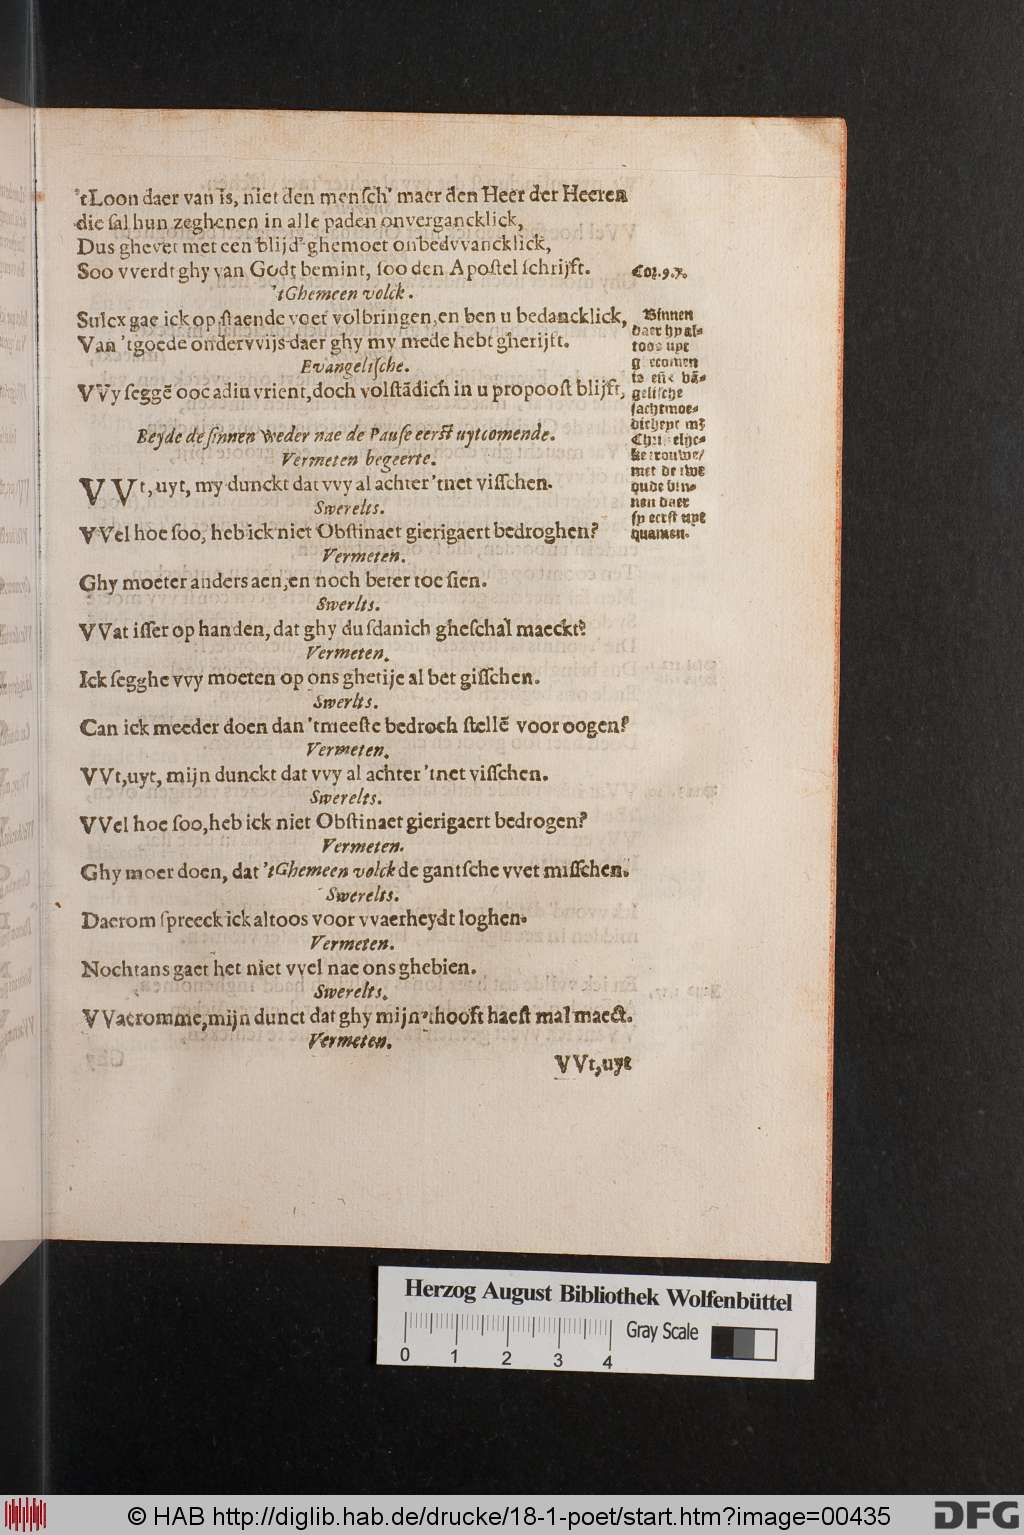 'tLoon daer van is, niet den menſch' maer den Heer der Heeren
die ſal hun zeghenen in alle paden onvergancklick,
Dus ghevet met een blijd' ghemoet onbedvvancklick,
Soo vverdt ghy van Godt bemint, ſoo den Apoſtel ſchrijft.
Cor. 9. 7.
'tGhemeen volck.
Sulcx gae ick op ſtaende voet volbringen, en ben u bedancklick,
Van 'tgoede ondervvijs daer ghy my mede hebt gherijft.
Evangeliſche.
VVy ſeggē ooc adiu vrient, doch volſtādich in u propooſt blijft,
Binnen
daer hy al-
toos uyt
gecomen
is eñ
geliſche
ſachtmoe-
dicheyt
getrouwe/
met de twe
oude bin-
nen daer
ſy eerſt uyt
quamen.
Beyde de ſinnen weder nae de Pauſe eerſt uytcomende.
Vermeten begeerte.
VVt, uyt, my dunckt dat vvy al achter 'tnet viſſchen.
Swerelts.
VVel hoe ſoo, heb ick niet Obſtinaet gierigaert bedroghen?
Vermeten.
Ghy moeter anders aen, en noch beter toe ſien.
Swerlts.
VVat iſſer op handen, dat ghy duſdanich gheſchal maeckt?
Vermeten.
Ick ſegghe vvy moeten op ons ghetije al bet giſſchen.
Swerlts.
Can ick meeder doen dan 'tmeeſte bedroch ſtellē voor oogen?
Vermeten.
VVt, uyt, mijn dunckt dat vvy al achter 'tnet viſſchen.
Swerelts.
VVel hoe ſoo, heb ick niet Obſtinaet gierigaert bedrogen?
Vermeten.
Ghy moet doen, dat 'tGhemeen volck de gantſche vvet miſſchen.
Swerelts.
Daerom ſpreeck ick altoos voor vvaerheydt loghen.
Vermeten.
Nochtans gaet het niet vvel nae ons ghebien.
Swerelts.
VVacromme, mijn dunct dat ghy mijn 'thooft haeſt mal maect.
Vermeten.
VVt, uyt
Herzog August Bibliothek Wolfenbüttel
0 1 2 3 4
Gray Scale
© HAB http://diglib.hab.de/drucke/18-1-poet/start.htm?image=00435
DFG